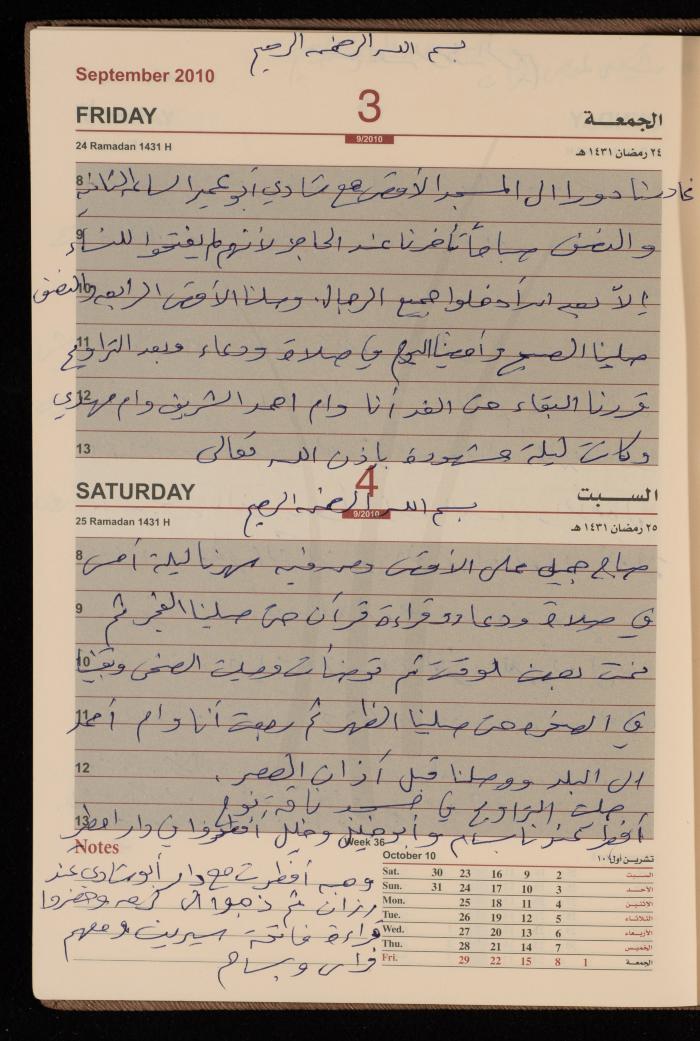 بسم الله الرحمن الرحيم
September 2010
FRIDAY
3
الجمعة
24 Ramadan 1431 H
9/2010
٢٤ رمضان ١٤٣١ هـ
8
غادرنا دورا الى المسجد الأقصى مع شادي أبو عمير الساعة الثانية
9
والنصف صباحاً تأخرنا عند الحاجز لأنهم لم يفتحوا للنساء
10
إلاّ بعد أن أدخلوا جميع الرجال. وصلنا الأقصى الرابعة والنصف
11
صلينا الصبح وأمضينا اليوم في صلاة ودعاء وبعد التراويح
12
قررنا البقاء حتى الغد أنا وام احمد الشريف وام مهدي
13
وكانت ليلة مشهودة بإذن الله تعالى
SATURDAY
4
السبت
بسم الله الرحمن الرحيم
25 Ramadan 1431 H
9/2010
٢٥ رمضان ١٤٣١ هـ
8
صباح جميل على الأقصى ومن فيه سهرنا ليلة أمس
9
في صلاة ودعاء وقراءة قرآن حتى صلينا الفجر ثم
10
نمت بعض الوقت ثم توضأت وصليت الضحى وبقينا
11
في الصخرة حتى صلينا الظهر ثم رجعت أنا وام أحمد
12
الى البلد ووصلنا قبل أذان العصر.
صليت التراويح في مسجد ناقة نوح
13
أفطر عندنا بسام وأبو خليل وخليل أفطروا في دار
Notes
Week 36
وهبه أفطرت مع دار أبو شادي عند
رزان ثم ذهبوا الى وحضروا
قراءة فاتحة سيرين ومعهم
وبسام
October 10
تشرين أول ١٠
Sat. 30 23 16 9 2 السبت
Sun. 31 24 17 10 3 الأحد
Mon. 25 18 11 4 الاثنين
Tue. 26 19 12 5 الثلاثاء
Wed. 27 20 13 6 الأربعاء
Thu. 28 21 14 7 الخميس
Fri. 29 22 15 8 1 الجمعة